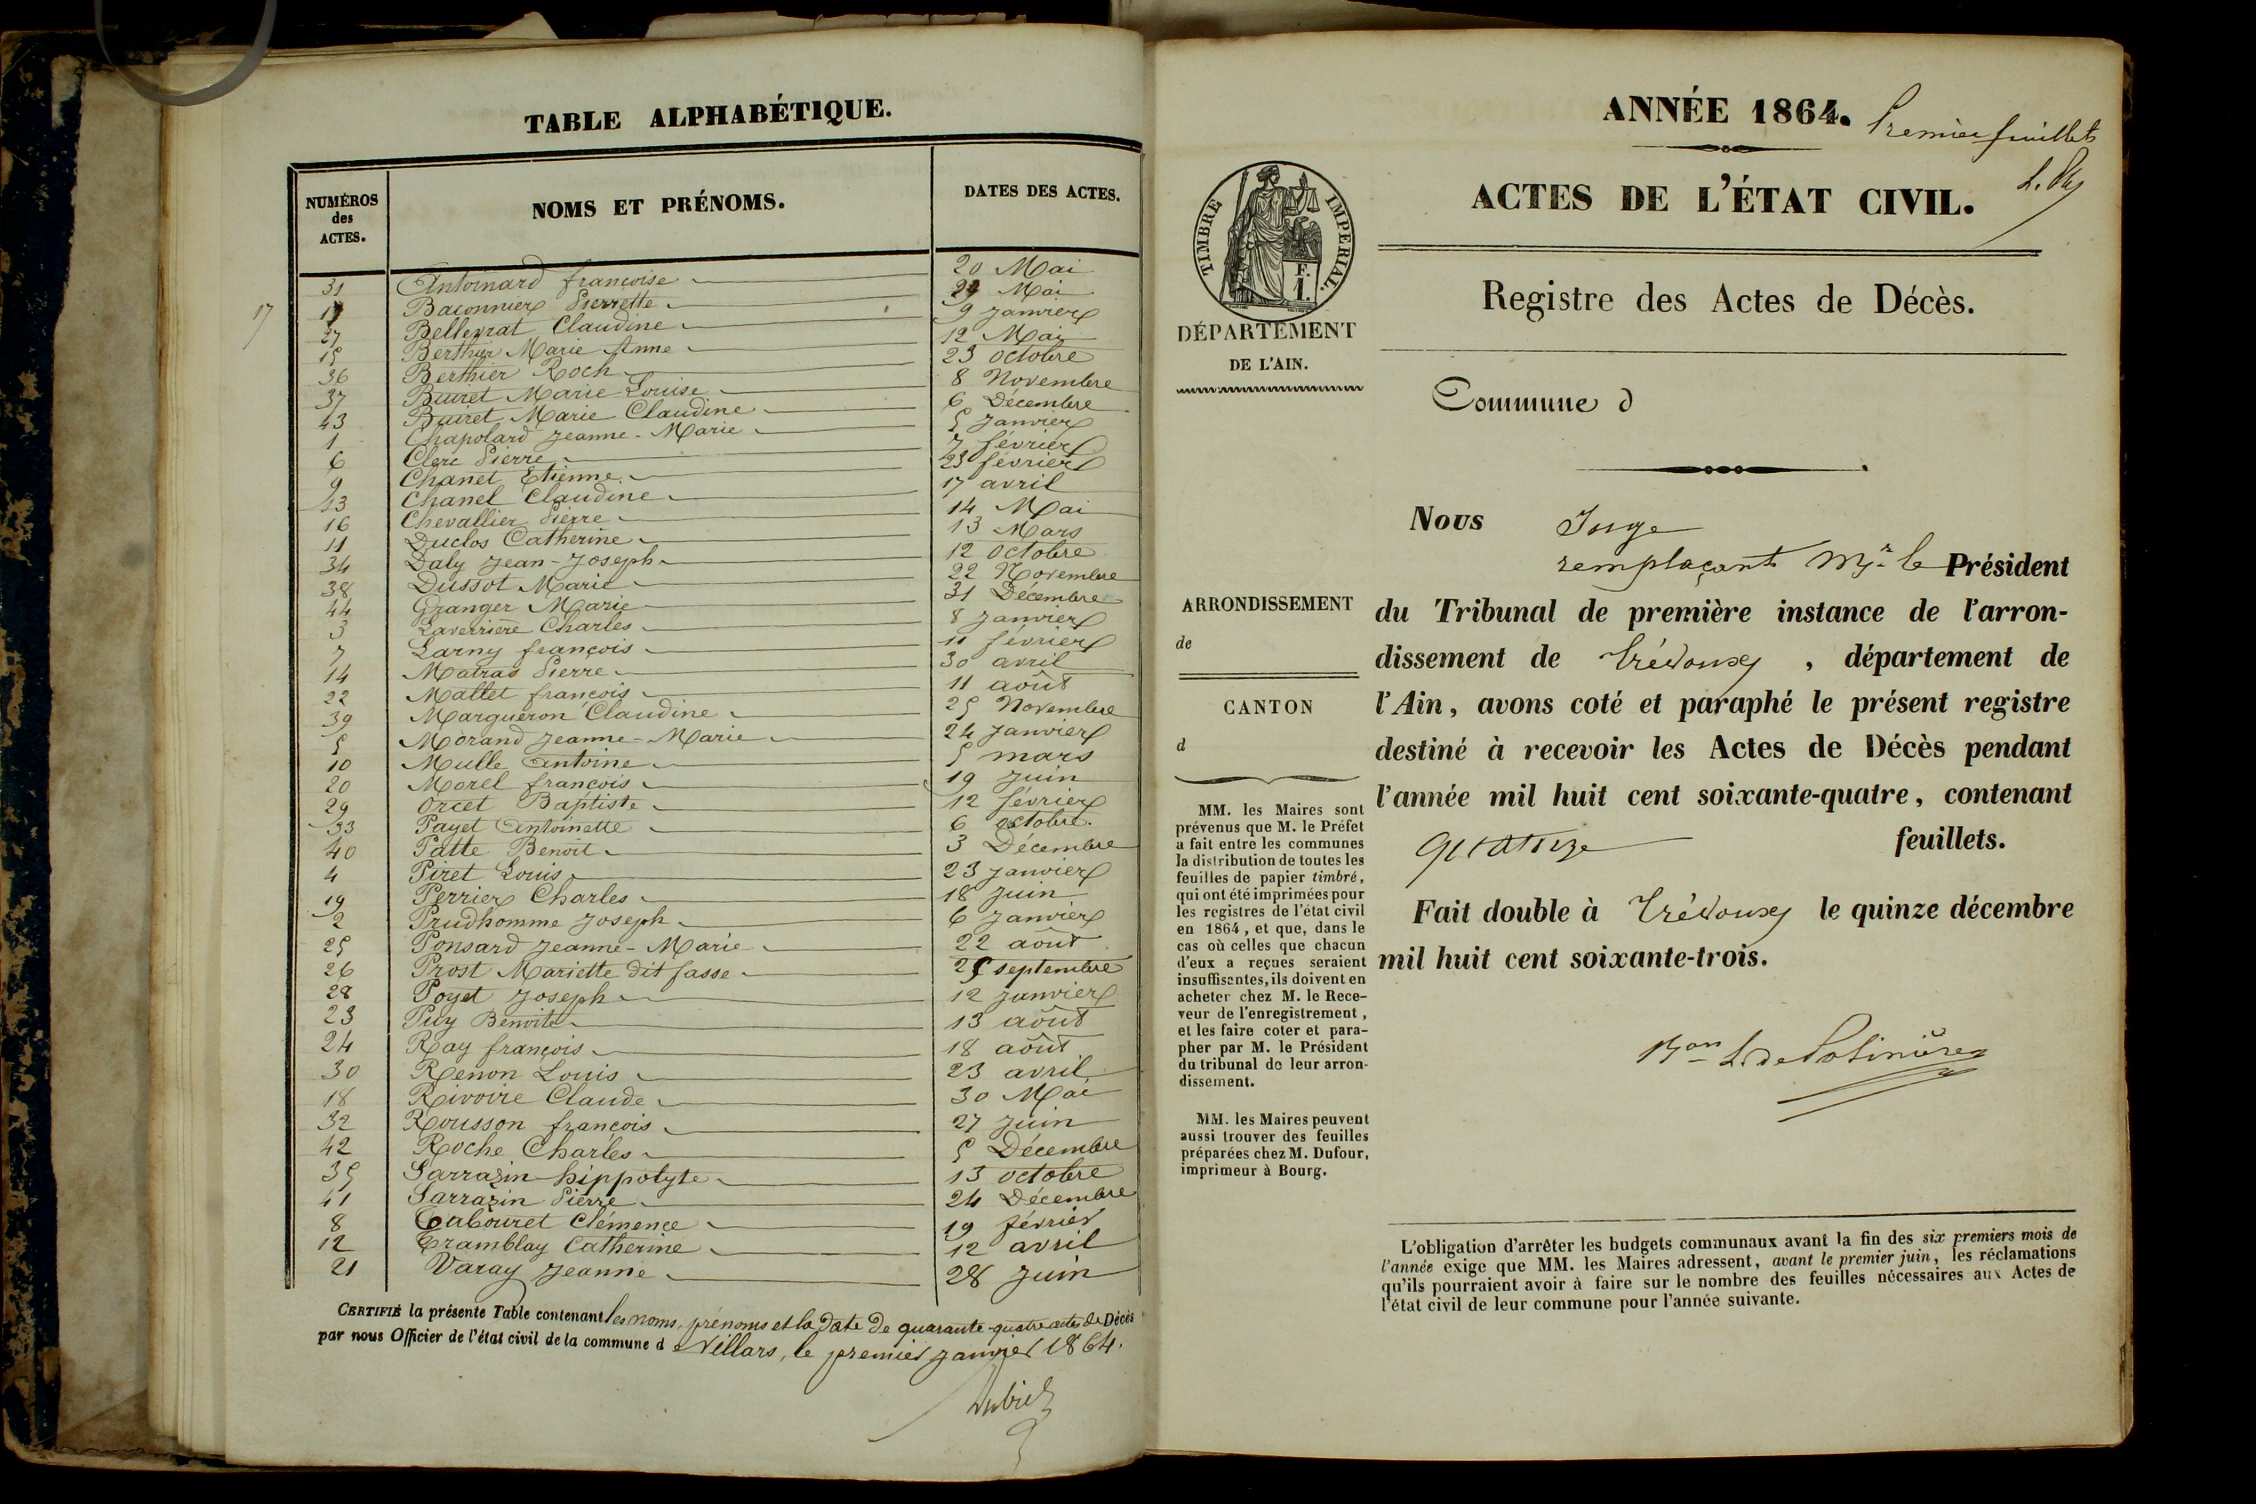 TABLE ALPHABÉTIQUE.
NUMÉROS
des
ACTES.
NOMS ET PRÉNOMS.
DATES DES ACTES.
31 Antoinard françoise 20 Mai
17 17 Baconnier Pierrette 29 Mai
27 Belleyrat Claudine 9 Janvier
15 Berthier Marie Anne 12 Mai
36 Berthier Roch 23 octobre
37 Buiret Marie Louise 8 Novembre
43 Buiret Marie Claudine 6 Décembre
1 Chapolard Jeanne-Marie 5 Janvier
6 Clerc Pierre 7 février
9 Chanet Etienne 23 février
13 Chanel Claudine 17 avril
16 Chevallier Pierre 14 Mai
11 Duclos Catherine 13 Mars
34 Daly Jean-Joseph 12 octobre
38 Dussot Marie 22 Novembre
44 Granger Marie 31 Décembre
3 Laverrière Charles 8 Janvier
7 Larny françois 11 février
14 Matras Pierre 30 avril
22 Mallet françois 11 août
39 Margueron Claudine 25 Novembre
5 Morand Jeanne-Marie 24 Janvier
10 Mulle Antoine 5 mars
20 Morel françois 19 Juin
29 Orcet Baptiste 12 février
33 Payet Antoinette 6 octobre
40 Patte Benoit 3 Décembre
4 Piret Louis 23 Janvier
19 Perrier Charles 18 Juin
2 Prudhomme Joseph 6 Janvier
25 Ponsard Jeanne-Marie 22 août
26 Prost Mariette dit fasse 25 septembre
28 Poyet Joseph 12 Janvier
23 Puy Benoite 13 août
24 Ray françois 18 août
30 Renon Louis 23 avril
18 Rivoire Claude 30 Mai
32 Rousson françois 27 Juin
42 Roche Charles 5 Décembre
35 Sarrazin hippolyte 13 octobre
41 Sarrazin Pierre 24 Décembre
8 Tabouret Clémence 19 février
12 Tramblay Catherine 12 avril
21 Varay Jeanne 28 Juin
CERTIFIÉ la présente Table contenant les noms, prénoms et la date de quarante-quatre actes de Décès
par nous Officier de l'état civil de la commune de Villars, le premier janvier 1864.
ANNÉE 1864.
Premier feuillet
ACTES DE L'ÉTAT CIVIL.
TIMBRE IMPERIAL.
F.
1.
Registre des Actes de Décès.
DÉPARTEMENT
DE L'AIN.
Commune d
ARRONDISSEMENT
de
CANTON
d
MM. les Maires sont
prévenus que M. le Préfet
a fait entre les communes
la distribution de toutes les
feuilles de papier timbré,
qui ont été imprimées pour
les registres de l'état civil
en 1864, et que, dans le
cas où celles que chacun
d'eux a reçues seraient
insuffisantes, ils doivent en
acheter chez M. le Rece-
veur de l'enregistrement,
et les faire coter et para-
pher par M. le Président
du tribunal de leur arron-
dissement.
MM. les Maires peuvent
aussi trouver des feuilles
préparées chez M. Dufour,
imprimeur à Bourg.
Nous Juge
remplaçant Mr. le Président
du Tribunal de première instance de l'arron-
dissement de Trévoux, département de
l'Ain, avons coté et paraphé le présent registre
destiné à recevoir les Actes de Décès pendant
l'année mil huit cent soixante-quatre, contenant
quatorze feuillets.
Fait double à Trévoux le quinze décembre
mil huit cent soixante-trois.
L'obligation d'arrêter les budgets communaux avant la fin des six premiers mois de
l'année exige que MM. les Maires adressent, avant le premier juin, les réclamations
qu'ils pourraient avoir à faire sur le nombre des feuilles nécessaires aux Actes de
l'état civil de leur commune pour l'année suivante.